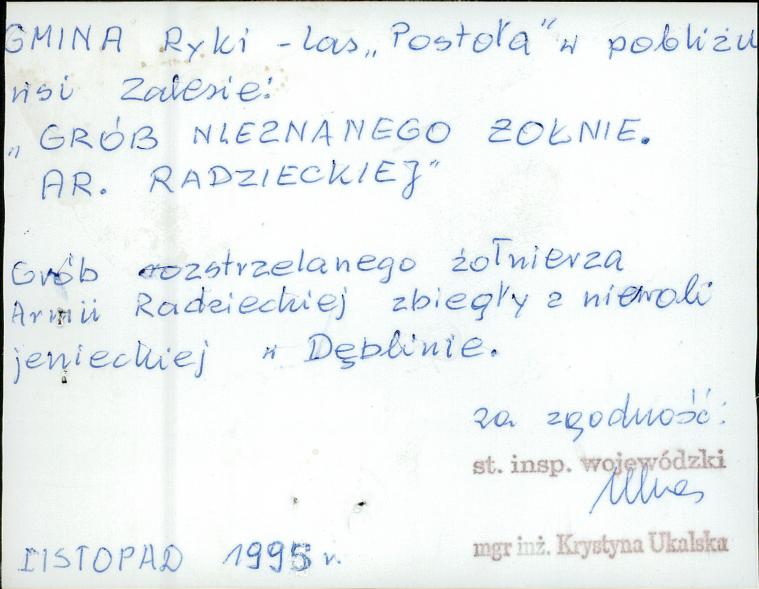 GMINA Ryki - las „Postoła" w pobliżu
wsi Zalesie:
„GRÓB NIEZNANEGO ŻOŁNIE.
AR. RADZIECKIEJ"
Grób rozstrzelanego żołnierza
Armii Radzieckiej zbiegły z niewoli
jenieckiej w Dęblinie.
za zgodność:
st. insp. wojewódzki
mgr inż. Krystyna Ukalska
LISTOPAD 1995 r.